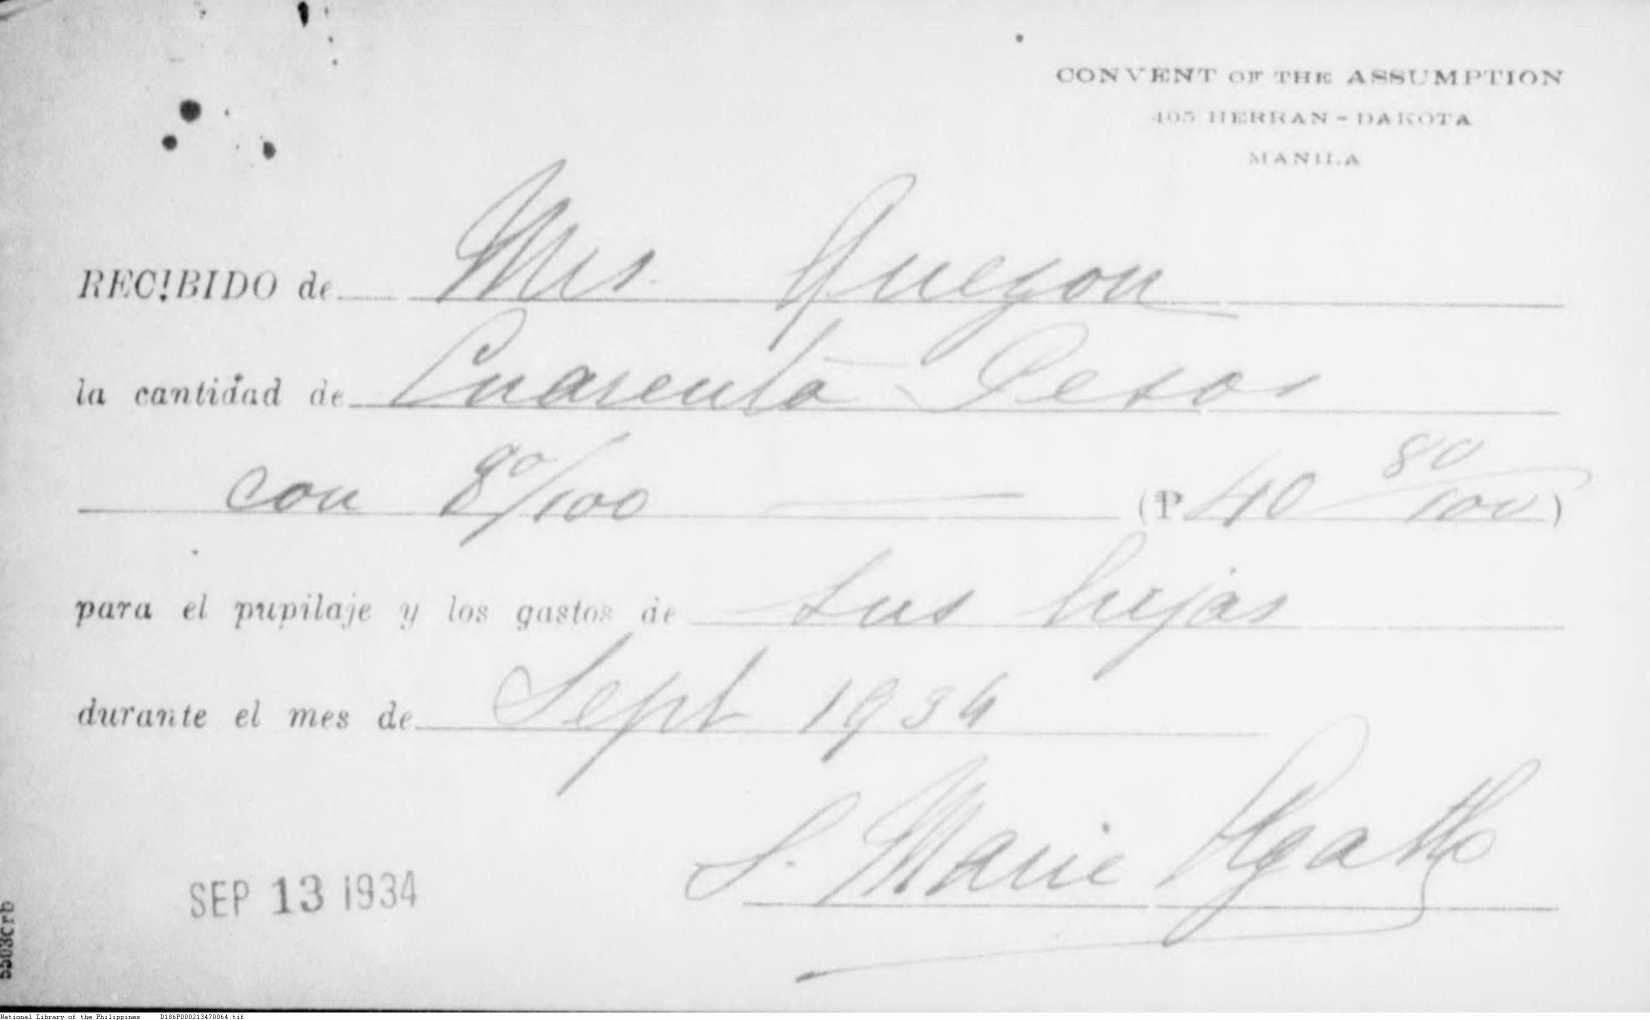 CONVENT OF THE ASSUMPTION
405 HERRAN - DAKOTA
MANILA
RECIBIDO de Mrs. Quezon
la cantidad de Cuarenta Pesos
con 80/100 (₱ 40 80/100)
para el pupilaje y los gastos de sus hijas
durante el mes de Sept 1934
S. Marie Agatha
SEP 13 1934
5503Crb
National Library of the Philippines D186P000213470064.tif